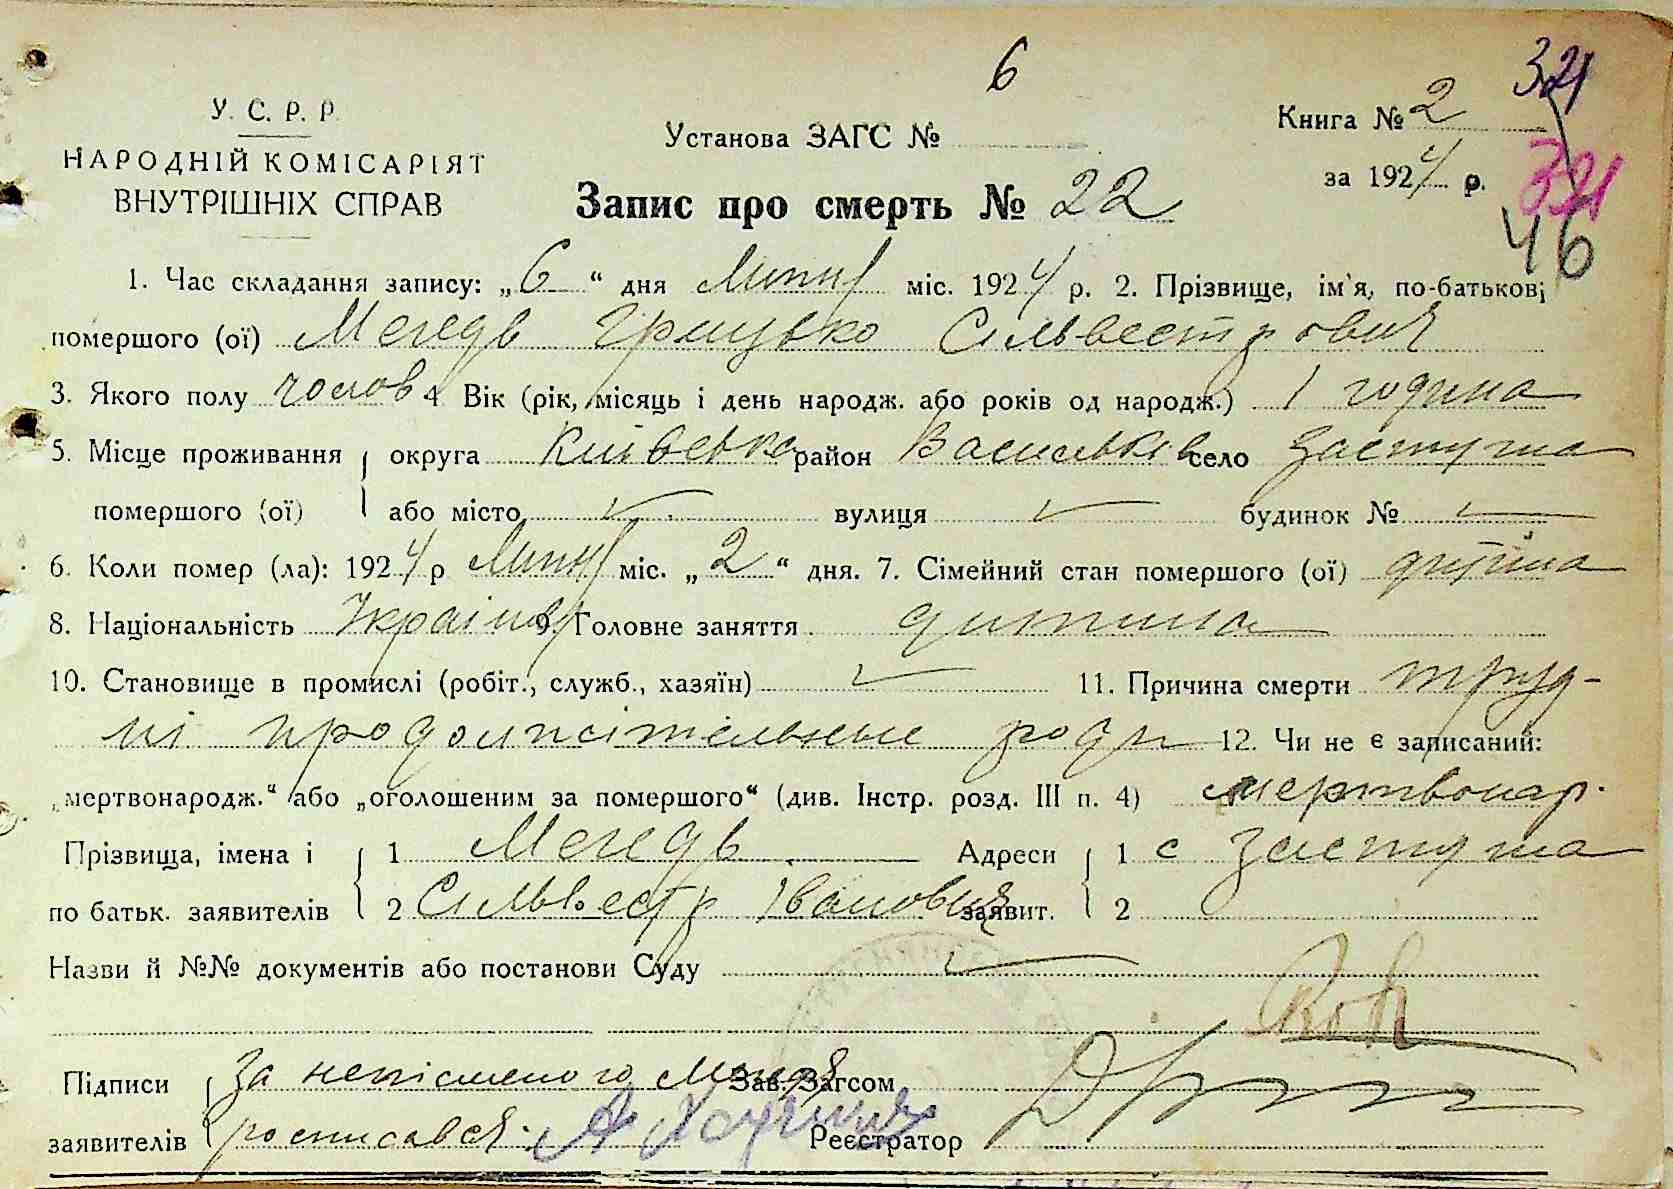 6
321
У. С. Р. Р.
НАРОДНІЙ КОМІСАРІЯТ
ВНУТРІШНІХ СПРАВ
Установа ЗАГС №
Книга № 2
за 1924 р.
321
46
Запис про смерть № 22
1. Час складання запису: „6“ дня Липня міс. 1924 р. 2. Прізвище, ім'я, по-батькові
помершого (ої) Мегедь Грицько Сильвестрович
3. Якого полу чолов 4 Вік (рік, місяць і день народж. або років од народж.) 1 година
5. Місце проживання округа Київська район Васильків село Застугна
помершого (ої) або місто вулиця будинок №
6. Коли помер (ла): 1924 р Липня міс. „2“ дня. 7. Сімейний стан помершого (ої) дитина
8. Національність Українец 9. Головне заняття дитина
10. Становище в промислі (робіт., служб., хазяїн) 11. Причина смерти труд-
ні продолжітельные роды 12. Чи не є записаний:
„мертвонародж.“ або „оголошеним за помершого“ (див. Інстр. розд. III п. 4) мертвонар.
Прізвища, імена і 1 Мегедь Адреси 1 с Застугна
по батьк. заявителів 2 Сильвестр Іванович заявит. 2
Назви й №№ документів або постанови Суду
Підписи За неписьменого Мегедя Зав. Загсом
заявителів росписався Реєстратор